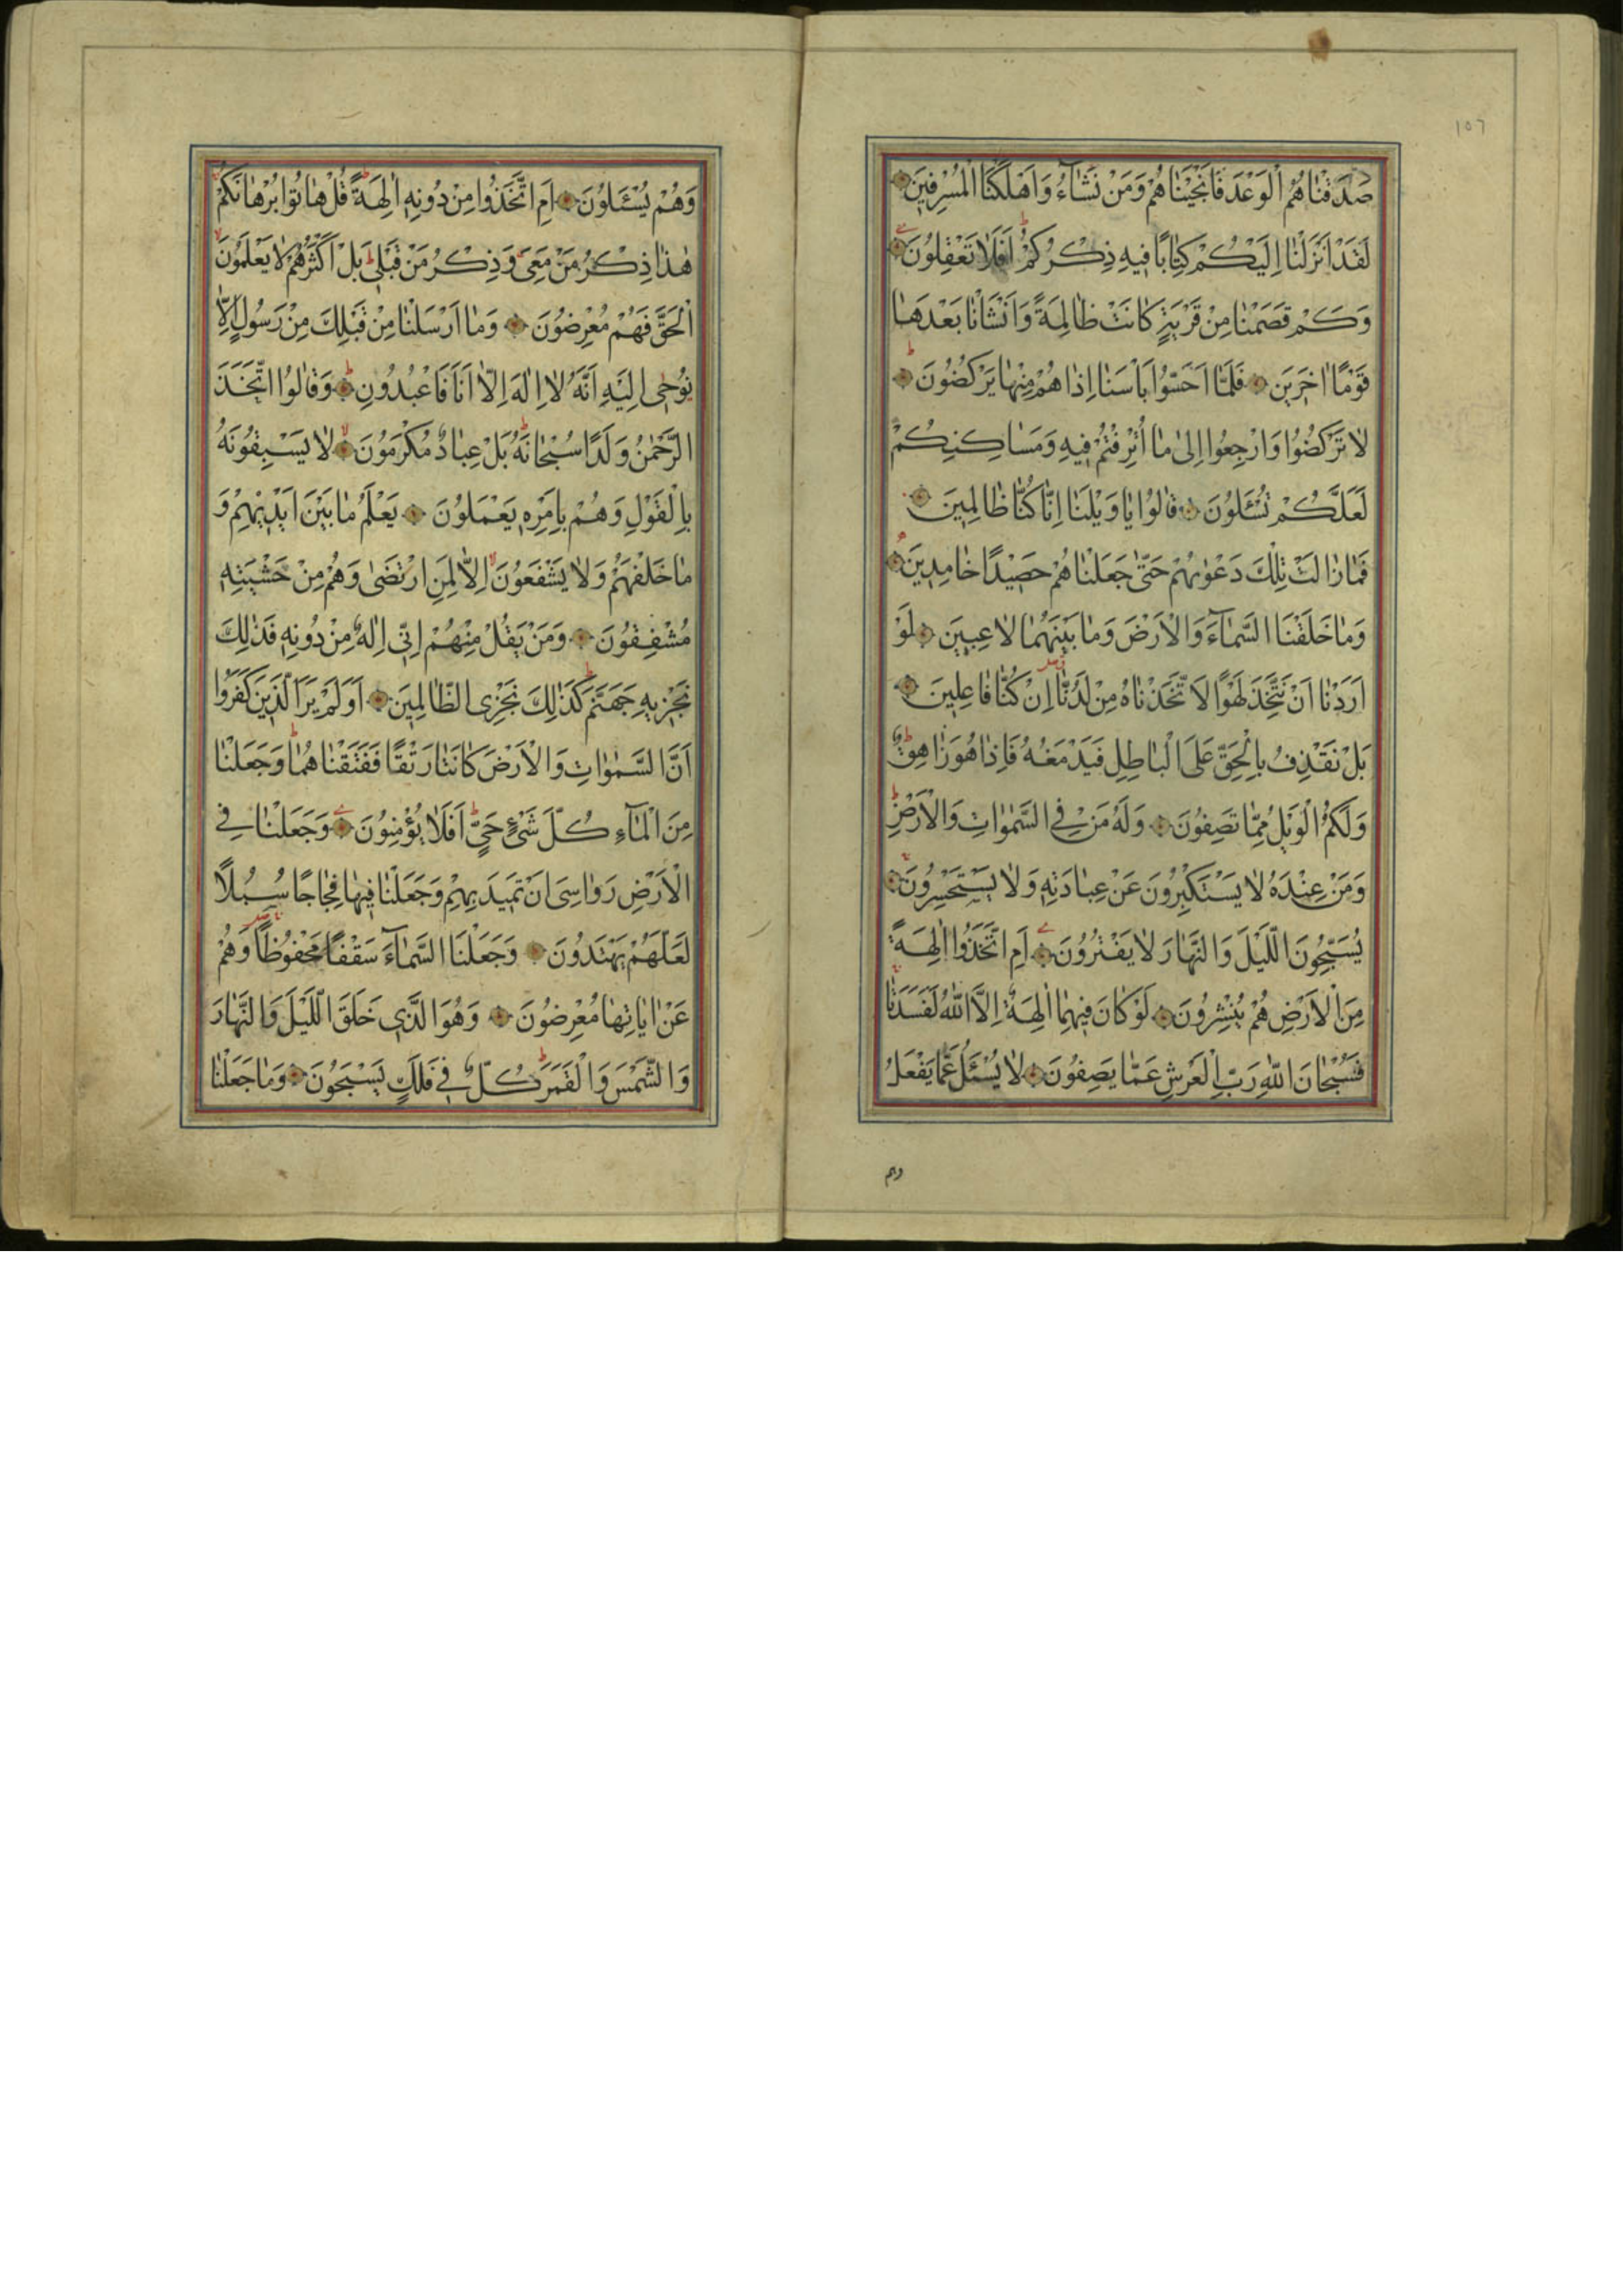 ١٥٦
صَدَقْنَاهُمُ الْوَعْدَ فَاَنْجَيْنَاهُمْ وَمَنْ نَشَآءُ وَاَهْلَكْنَا الْمُسْرِفِينَ
لَقَدْ اَنْزَلْنَا اِلَيْكُمْ كِتَابًا فِيهِ ذِكْرُكُمْ اَفَلَا تَعْقِلُونَ
وَكَمْ قَصَمْنَا مِنْ قَرْيَةٍ كَانَتْ ظَالِمَةً وَاَنْشَاْنَا بَعْدَهَا
قَوْمًا اٰخَرِينَ فَلَمَّا اَحَسُّوا بَاْسَنَا اِذَا هُمْ مِنْهَا يَرْكُضُونَ
لَا تَرْكُضُوا وَارْجِعُوا اِلٰى مَا اُتْرِفْتُمْ فِيهِ وَمَسَاكِنِكُمْ
لَعَلَّكُمْ تُسْئَلُونَ قَالُوا يَا وَيْلَنَا اِنَّا كُنَّا ظَالِمِينَ
فَمَا زَالَتْ تِلْكَ دَعْوٰيهُمْ حَتّٰى جَعَلْنَاهُمْ حَصِيدًا خَامِدِينَ
وَمَا خَلَقْنَا السَّمَآءَ وَالْاَرْضَ وَمَا بَيْنَهُمَا لَاعِبِينَ لَوْ
اَرَدْنَا اَنْ نَتَّخِذَ لَهْوًا لَاتَّخَذْنَاهُ مِنْ لَدُنَّا اِنْ كُنَّا فَاعِلِينَ
بَلْ نَقْذِفُ بِالْحَقِّ عَلَى الْبَاطِلِ فَيَدْمَغُهُ فَاِذَا هُوَ زَاهِقٌ
وَلَكُمُ الْوَيْلُ مِمَّا تَصِفُونَ وَلَهُ مَنْ فِي السَّمٰوَاتِ وَالْاَرْضِ
وَمَنْ عِنْدَهُ لَا يَسْتَكْبِرُونَ عَنْ عِبَادَتِهِ وَلَا يَسْتَحْسِرُونَ
يُسَبِّحُونَ الَّيْلَ وَالنَّهَارَ لَا يَفْتُرُونَ اَمِ اتَّخَذُوا اٰلِهَةً
مِنَ الْاَرْضِ هُمْ يُنْشِرُونَ لَوْ كَانَ فِيهِمَا اٰلِهَةٌ اِلَّا اللّٰهُ لَفَسَدَتَا
فَسُبْحَانَ اللّٰهِ رَبِّ الْعَرْشِ عَمَّا يَصِفُونَ لَا يُسْئَلُ عَمَّا يَفْعَلُ
وهم
وَهُمْ يُسْئَلُونَ اَمِ اتَّخَذُوا مِنْ دُونِهِ اٰلِهَةً قُلْ هَاتُوا بُرْهَانَكُمْ
هٰذَا ذِكْرُ مَنْ مَعِيَ وَذِكْرُ مَنْ قَبْلِي بَلْ اَكْثَرُهُمْ لَا يَعْلَمُونَ
الْحَقَّ فَهُمْ مُعْرِضُونَ وَمَا اَرْسَلْنَا مِنْ قَبْلِكَ مِنْ رَسُولٍ اِلَّا
نُوحِي اِلَيْهِ اَنَّهُ لَا اِلٰهَ اِلَّا اَنَا فَاعْبُدُونِ وَقَالُوا اتَّخَذَ
الرَّحْمٰنُ وَلَدًا سُبْحَانَهُ بَلْ عِبَادٌ مُكْرَمُونَ لَا يَسْبِقُونَهُ
بِالْقَوْلِ وَهُمْ بِاَمْرِهِ يَعْمَلُونَ يَعْلَمُ مَا بَيْنَ اَيْدِيهِمْ وَ
مَا خَلْفَهُمْ وَلَا يَشْفَعُونَ اِلَّا لِمَنِ ارْتَضٰى وَهُمْ مِنْ خَشْيَتِهِ
مُشْفِقُونَ وَمَنْ يَقُلْ مِنْهُمْ اِنِّي اِلٰهٌ مِنْ دُونِهِ فَذٰلِكَ
نَجْزِيهِ جَهَنَّمَ كَذٰلِكَ نَجْزِي الظَّالِمِينَ اَوَلَمْ يَرَ الَّذِينَ كَفَرُوا
اَنَّ السَّمٰوَاتِ وَالْاَرْضَ كَانَتَا رَتْقًا فَفَتَقْنَاهُمَا وَجَعَلْنَا
مِنَ الْمَآءِ كُلَّ شَيْءٍ حَيٍّ اَفَلَا يُؤْمِنُونَ وَجَعَلْنَا فِي
الْاَرْضِ رَوَاسِيَ اَنْ تَمِيدَ بِهِمْ وَجَعَلْنَا فِيهَا فِجَاجًا سُبُلًا
لَعَلَّهُمْ يَهْتَدُونَ وَجَعَلْنَا السَّمَآءَ سَقْفًا مَحْفُوظًا وَهُمْ
عَنْ اٰيَاتِهَا مُعْرِضُونَ وَهُوَ الَّذِي خَلَقَ الَّيْلَ وَالنَّهَارَ
وَالشَّمْسَ وَالْقَمَرَ كُلٌّ فِي فَلَكٍ يَسْبَحُونَ وَمَا جَعَلْنَا